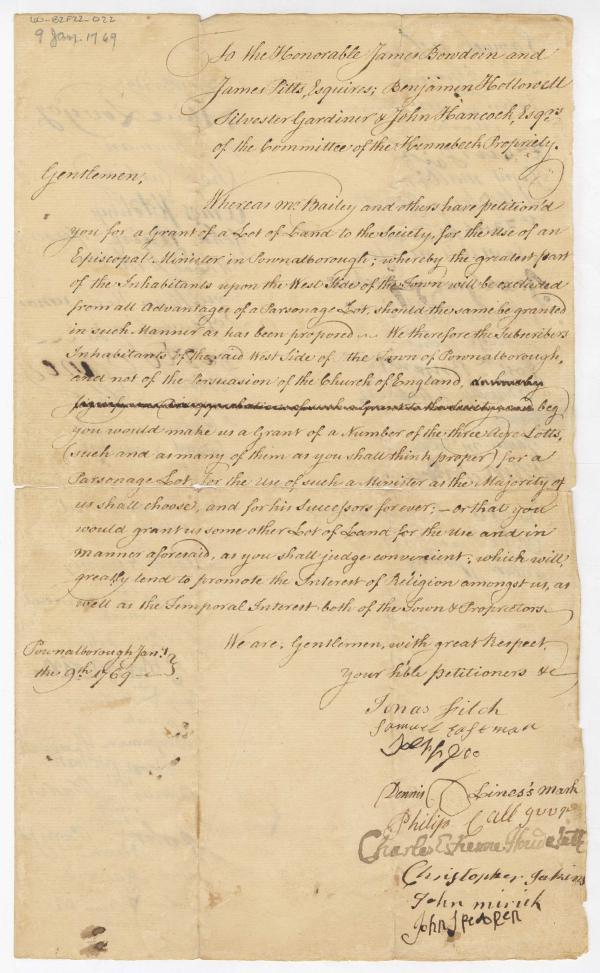 9 Jan. 1769
To the Honorable James Bowdoin and
James Pitts, Esquires; Benjamin Hollowell
Silvester Gardiner & John Hancock, Esqrs
of the Committee of the Kennebeck Propriety.
Gentlemen,
Whereas mr Bailey and others have petition'd
you for a Grant of a Lot of Land to the Society, for the Use of an
Episcopal Minister in Pownalborough; whereby the greatest part
of the Inhabitants upon the West Side of the Town will be excluded
from all Advantages of a Parsonage Lot, should the same be granted
in such Manner as has been proposed We therefore the Subscribers
Inhabitants of the said West Side of the Town of Pownalborough,
and not of the Persuasion of the Church of England,
beg
you would make us a Grant of a Number of the three Acre Lotts,
(such and as many of them as you shall think proper) for a
Parsonage Lot, for the Use of such a Minister as the Majority of
us shall choose, and for his Successors for ever; — or that you
would grant us some other Lot of Land for the Use and in
manner aforesaid, as you shall judge convenient; which will,
greatly tend to promote the Interest of Religion amongst us, as
well as the Temporal Interest both of the Town & Proprietors.
We are, Gentlemen, with great Respect,
Pownalborough Jany
the 9th 1769
Your hble Petitioners &c
Jonas Fitch
Samuel Eastman
Dennis Lines's mark
Philip Call
Charles Estienne Houdelette
Christopher Jakins
John mirick
John Spearen